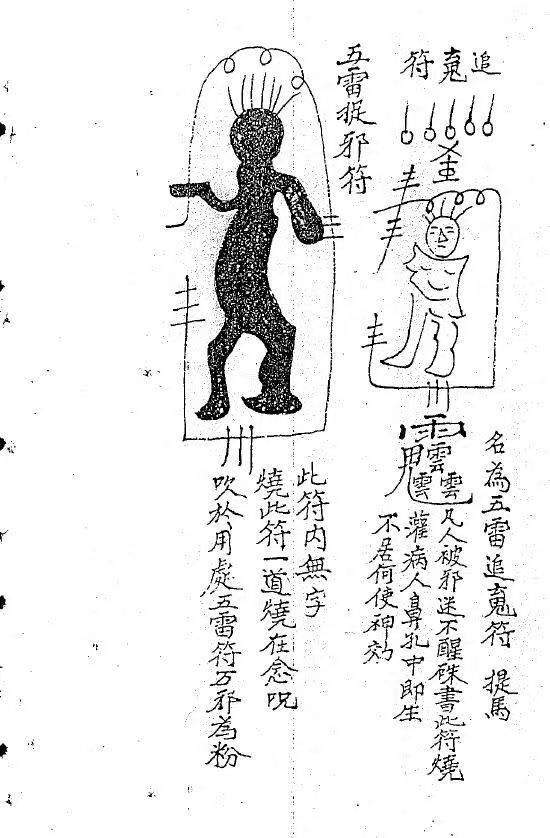 追䰟符
名為五雷追䰟符 提馬
凡人被邪迷不醒硃書此符燒
灌病人鼻孔中即生
不居何使神効
五雷捉邪符
此符内無字
燒此符一道燒在念呪
吹於用處五雷符万邪為粉